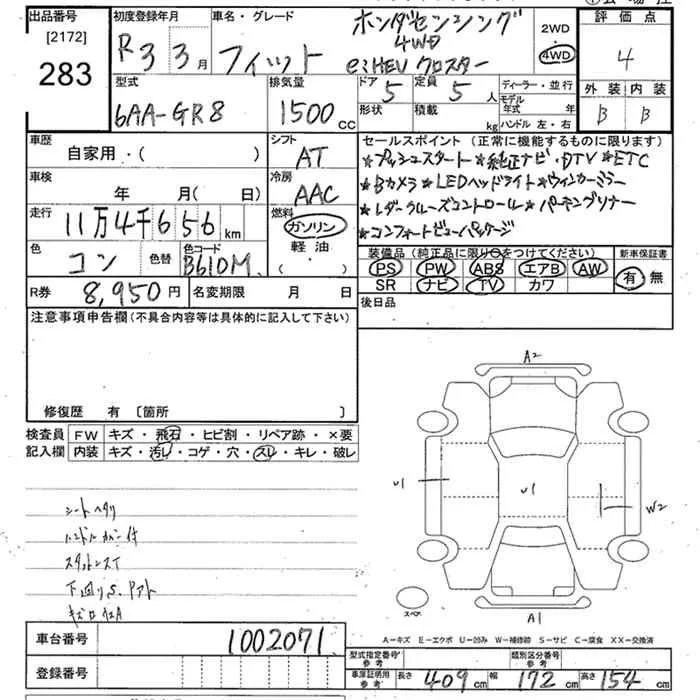 出品番号 [2172] 283
初度登録年月 R3 3月
車名・グレード フィット ホンダセンシング 4WD e:HEV クロスター
2WD
4WD
評価点 4
型式 6AA-GR8
排気量 1500cc
ドア 5
定員 5人
形状
積載 kg
ディーラー・並行
モデル年式 年
ハンドル 左・右
外装 B
内装 B
車歴 自家用・( )
シフト AT
セールスポイント (正常に機能するものに限ります)
★プッシュスタート★純正ナビ・DTV★ETC
★Bカメラ★LEDヘッドライト★ウィンカーミラー
★レダークルーズコントロール★パーキングソナー
★コンフォートビューパッケージ
車検 年 月( 日)
冷房 AAC
走行 11万4千656km
燃料 ガソリン
軽油・
( )
色 コン 色替
色コード B610M
装備品 (純正品に限り○をつけてください)
PS PW ABS エアB AW
SR ナビ TV カワ
新車保証書
有 無
R券 8,950円
名変期限 月 日
後日品
注意事項申告欄 (不具合内容等は具体的に記入して下さい)
修復歴 有 〔箇所 〕
検査員記入欄
FW キズ・飛石・ヒビ割・リペア跡・×要
内装 キズ・汚レ・コゲ・穴・スレ・キレ・破レ
シートヘタリ
ハンドルカバー付
スタットレスT
下回りS.
A2
U1
U1
W2
スペア
A1
A-キズ E-エクボ U-凹み W-補修跡 S-サビ C-腐食 XX-交換済
車台番号 1002071
登録番号
型式指定番号 参考
類別区分番号 参考
車庫証明用 参考
長さ 409cm 幅 172cm 高さ 154cm